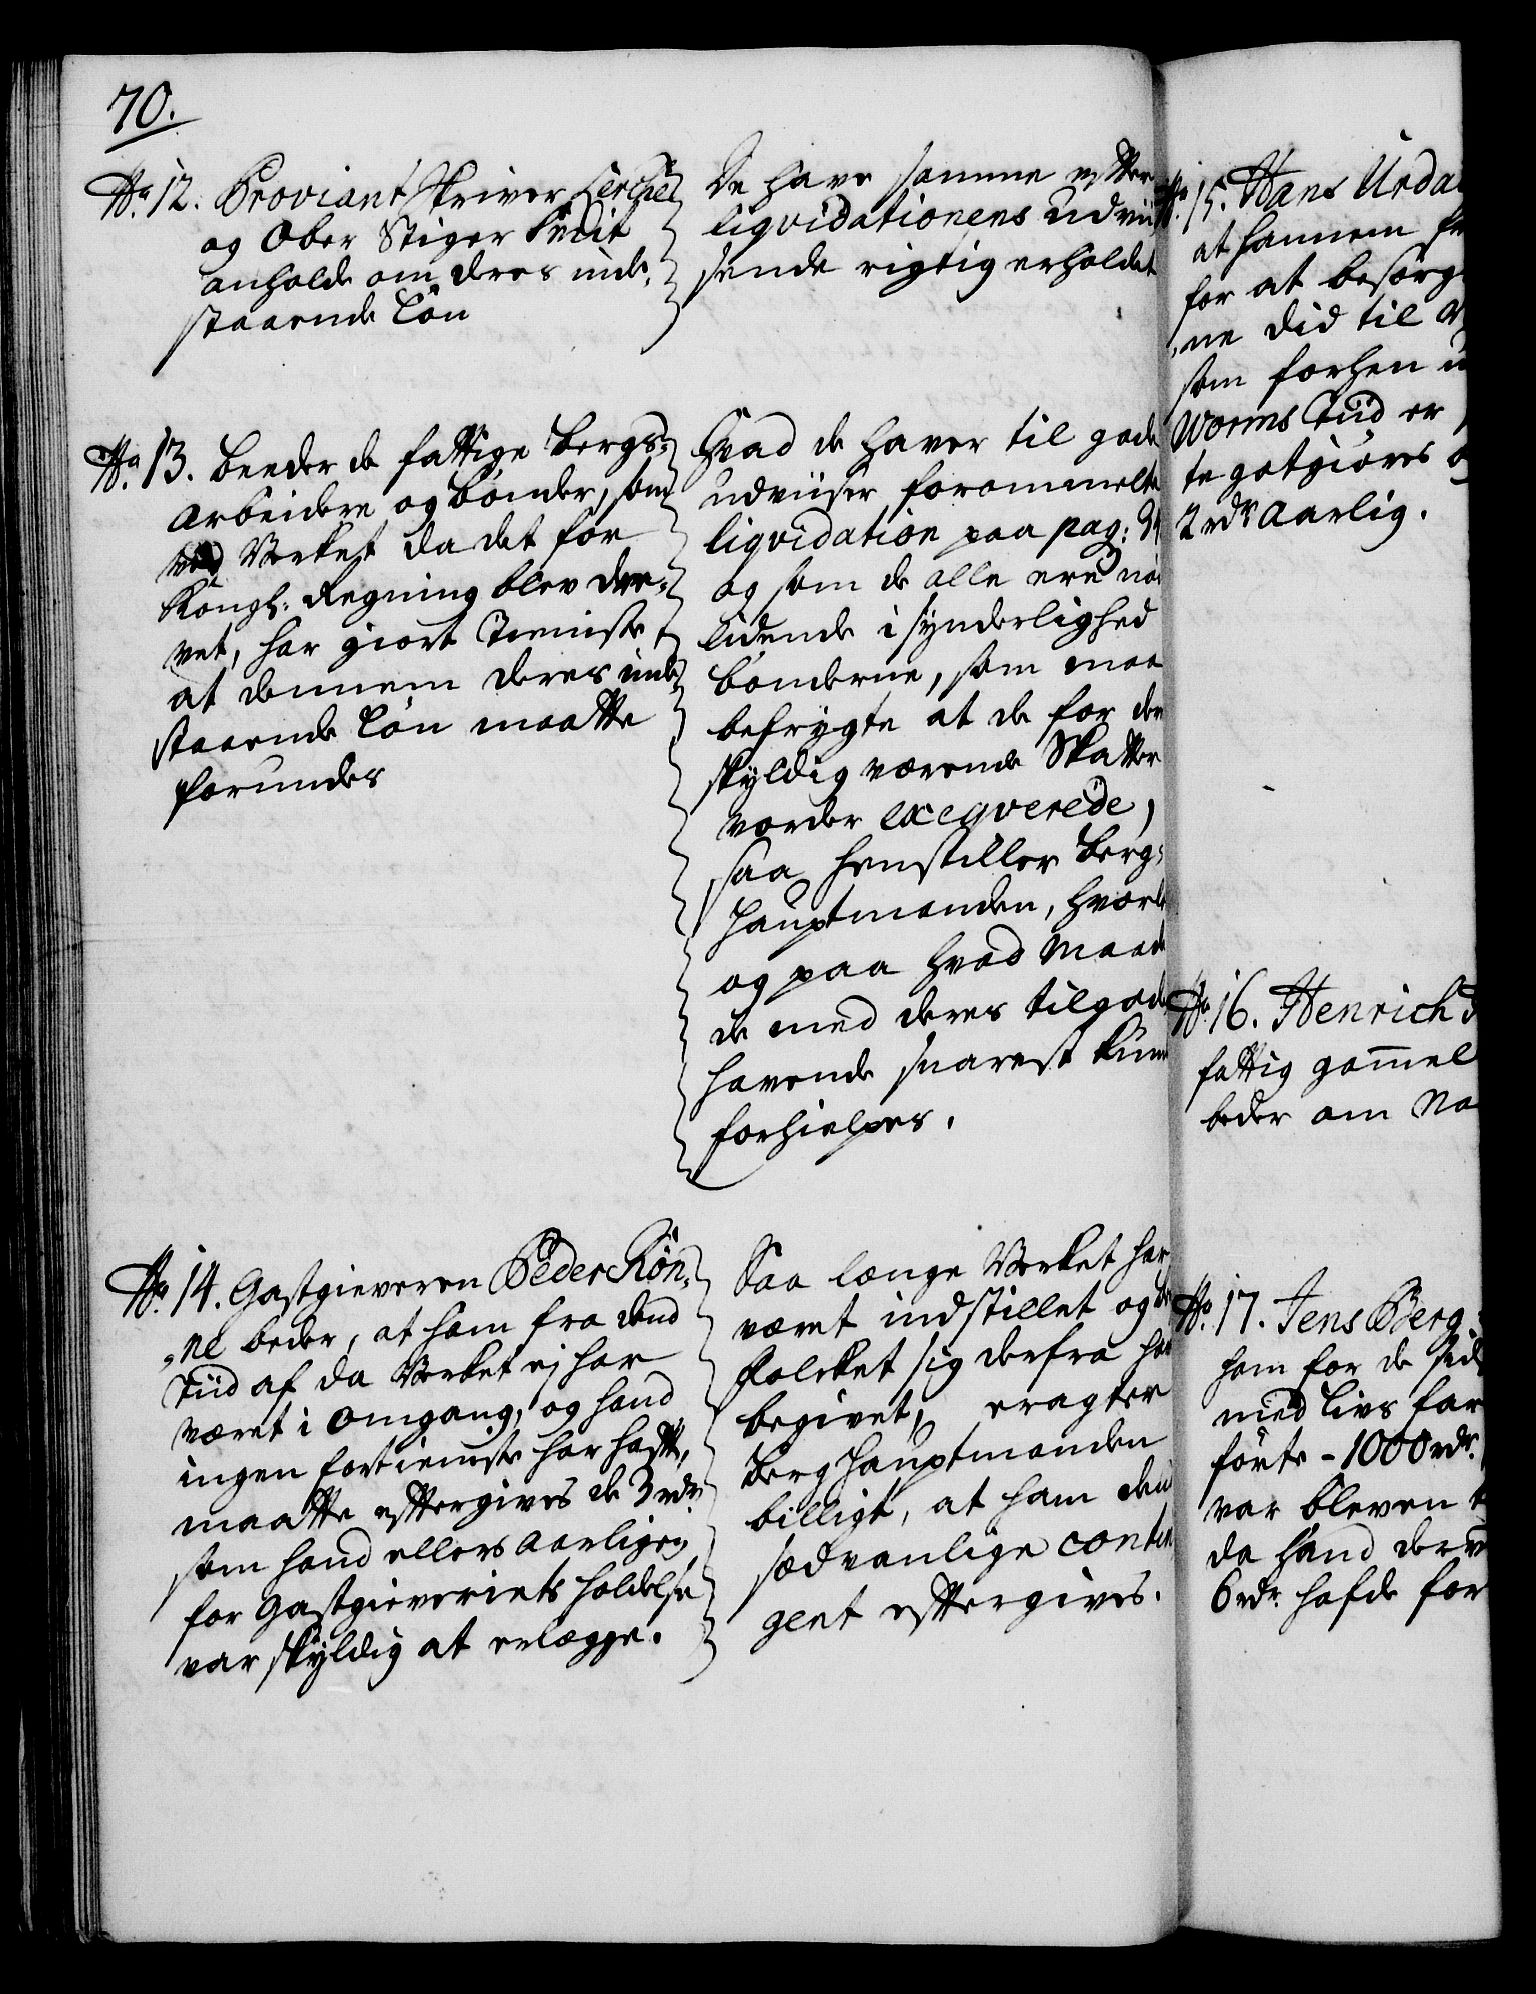 70.
No. 12. Proviant Skriver Lerche
og Ober Stiger Knit
anholde om deres inde,
staaende Løn
De have samme effter
liqvidationens Udvii
sende rigtig erholdet
No. 13. beeder de fattige bergs-
arbeidere og bønder, som
ved Verket da det for
Kongl: Regning blev dre-
vet, har giort Tieniste
at dennem deres inde
staaende Løn maatte
forundes
Hvad de haver til gode
udviiser forommelte
liqvidation paa pag:
og som de alle ere nø
lidende i synderlighed
bønderne, som maa
befrygte at de for der
skyldig værende Skatter
vorder exeqverede,
saa henstiller berg-
hauptmanden, hvorle
og paa hvad Maade
de med deres tilgode
havende snarest kun
forhielpes.
No. 14. Gastgieveren Peder Røn,
,ne beder, at ham fra dend
Tiid af da Verket ej har
været i omgang, og hand
ingen fortieniste har hafft,
maatte efftergives de 3 rdr.
som hand ellers aarligen
for Gastgieveriets holdelse
var skyldig at erlægge.
Saa længe Verket har
været indstillet og de
Folcket sig derfra har
begivet, eragter
berghauptmanden
billigt, at ham den
sædvanlige contin
gent efftergives.
No. 15. Hans Urda
at hannem
for at besørg
,ne did til
som forhen
Worms Tiid er
te gotgiøres
2 rdr. aarlig.
No. 16. Henrich
fattig gammel
beder om No
No. 17. Jens Berg
ham for de sid
med Livs far
førte - 1000 rdr.
var bleven
da hand der
6 rdr. hafde for